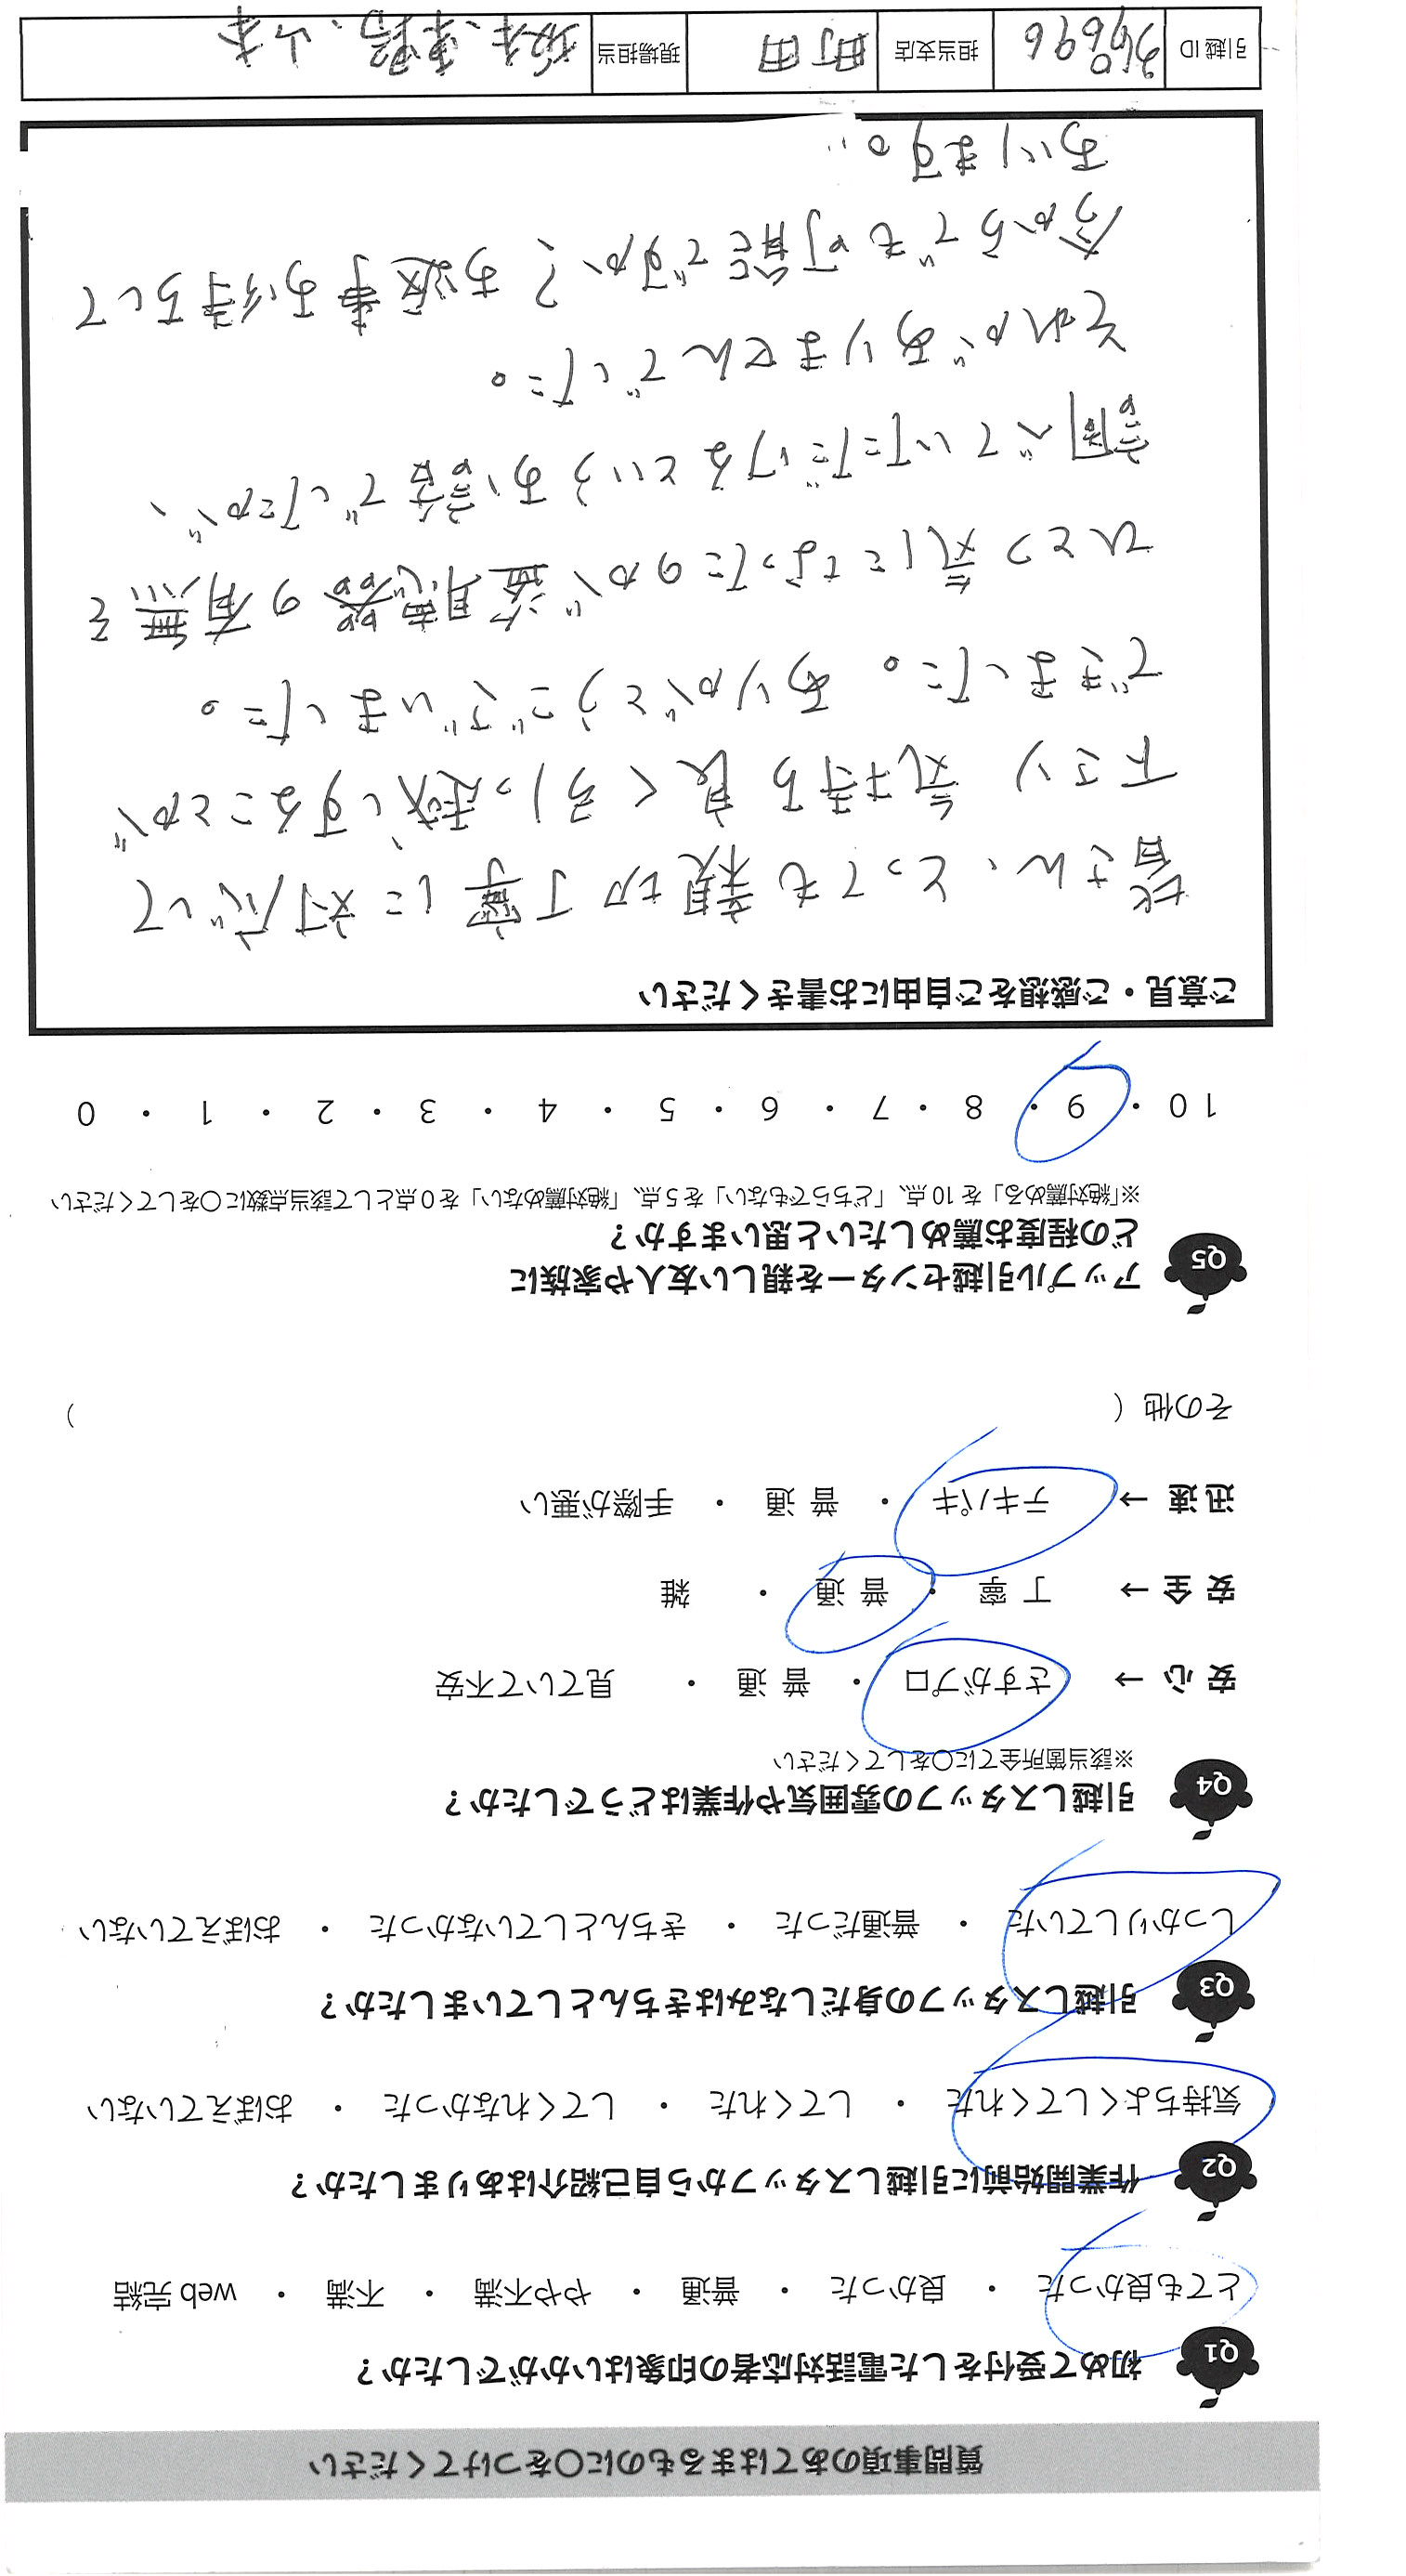 質問事項のあてはまるものに〇をつけてください
Q1 初めて受付をした電話対応者の印象はいかがでしたか？
とても良かった ・ 良かった ・ 普通 ・ やや不満 ・ 不満 ・ web 完結
Q2 作業開始前に引越しスタッフから自己紹介はありましたか？
気持ちよくしてくれた ・ してくれた ・ してくれなかった ・ おぼえていない
Q3 引越しスタッフの身だしなみはきちんとしていましたか？
しっかりしていた ・ 普通だった ・ きちんとしていなかった ・ おぼえていない
Q4 引越しスタッフの雰囲気や作業はどうでしたか？
※該当箇所全てに〇をしてください
安 心 → さすがプロ ・ 普 通 ・ 見ていて不安
安 全 → 丁 寧 ・ 普 通 ・ 雑
迅 速 → テキパキ ・ 普 通 ・ 手際が悪い
その他（ ）
Q5 アップル引越センターを親しい友人や家族に
どの程度お薦めしたいと思いますか？
※「絶対薦める」を 10 点、「どちらでもない」を 5 点、「絶対薦めない」を 0 点として該当点数に〇をしてください
10 ・ 9 ・ 8 ・ 7 ・ 6 ・ 5 ・ 4 ・ 3 ・ 2 ・ 1 ・ 0
ご意見・ご感想をご自由にお書きください
皆さん、とっても親切丁寧に対応して
下さり 気持ち良く引っ越しすることが
できました。ありがとうございました。
ひとつ気になったのが盗聴器の有無を
調べていただけるというお話でしたが、
それがありませんでした。
今からでも可能ですか？お返事お待ちして
おります。
引越 ID 担当支店 町田 現場担当 、山本